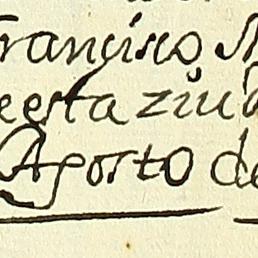 Francisco
eesta ziu
Agosto de